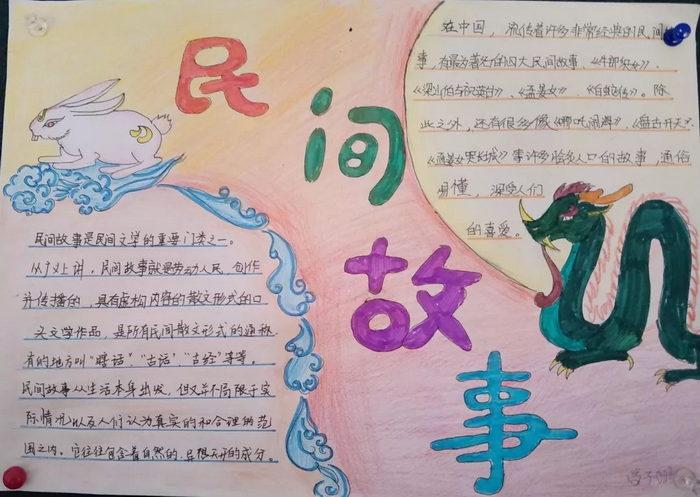 民间故事
在中国，流传着许多非常经典的民间故
事，有最为著名的四大民间故事、《牛郎织女》、
《梁山伯与祝英台》、《孟姜女》 《白蛇传》。除
此之外，还有很多像《哪吒闹海》、《盘古开天》、
《孟姜女哭长城》等许多脍炙人口的故事，通俗
易懂，深受人们
的喜爱。
民间故事是民间文学的重要门类之一。
从广义上讲，民间故事就是劳动人民，创作
并传播的，具有虚构内容的散文形式的口
头文学作品，是所有民间散文形式的通称
有的地方叫“瞎话”、“古话”、“古经”等等。
民间故事从生活本身出发，但又并不局限于实
际情况以及人们认为真实的和合理的范
围之内。它往往包含着自然的、异想天开的成分。